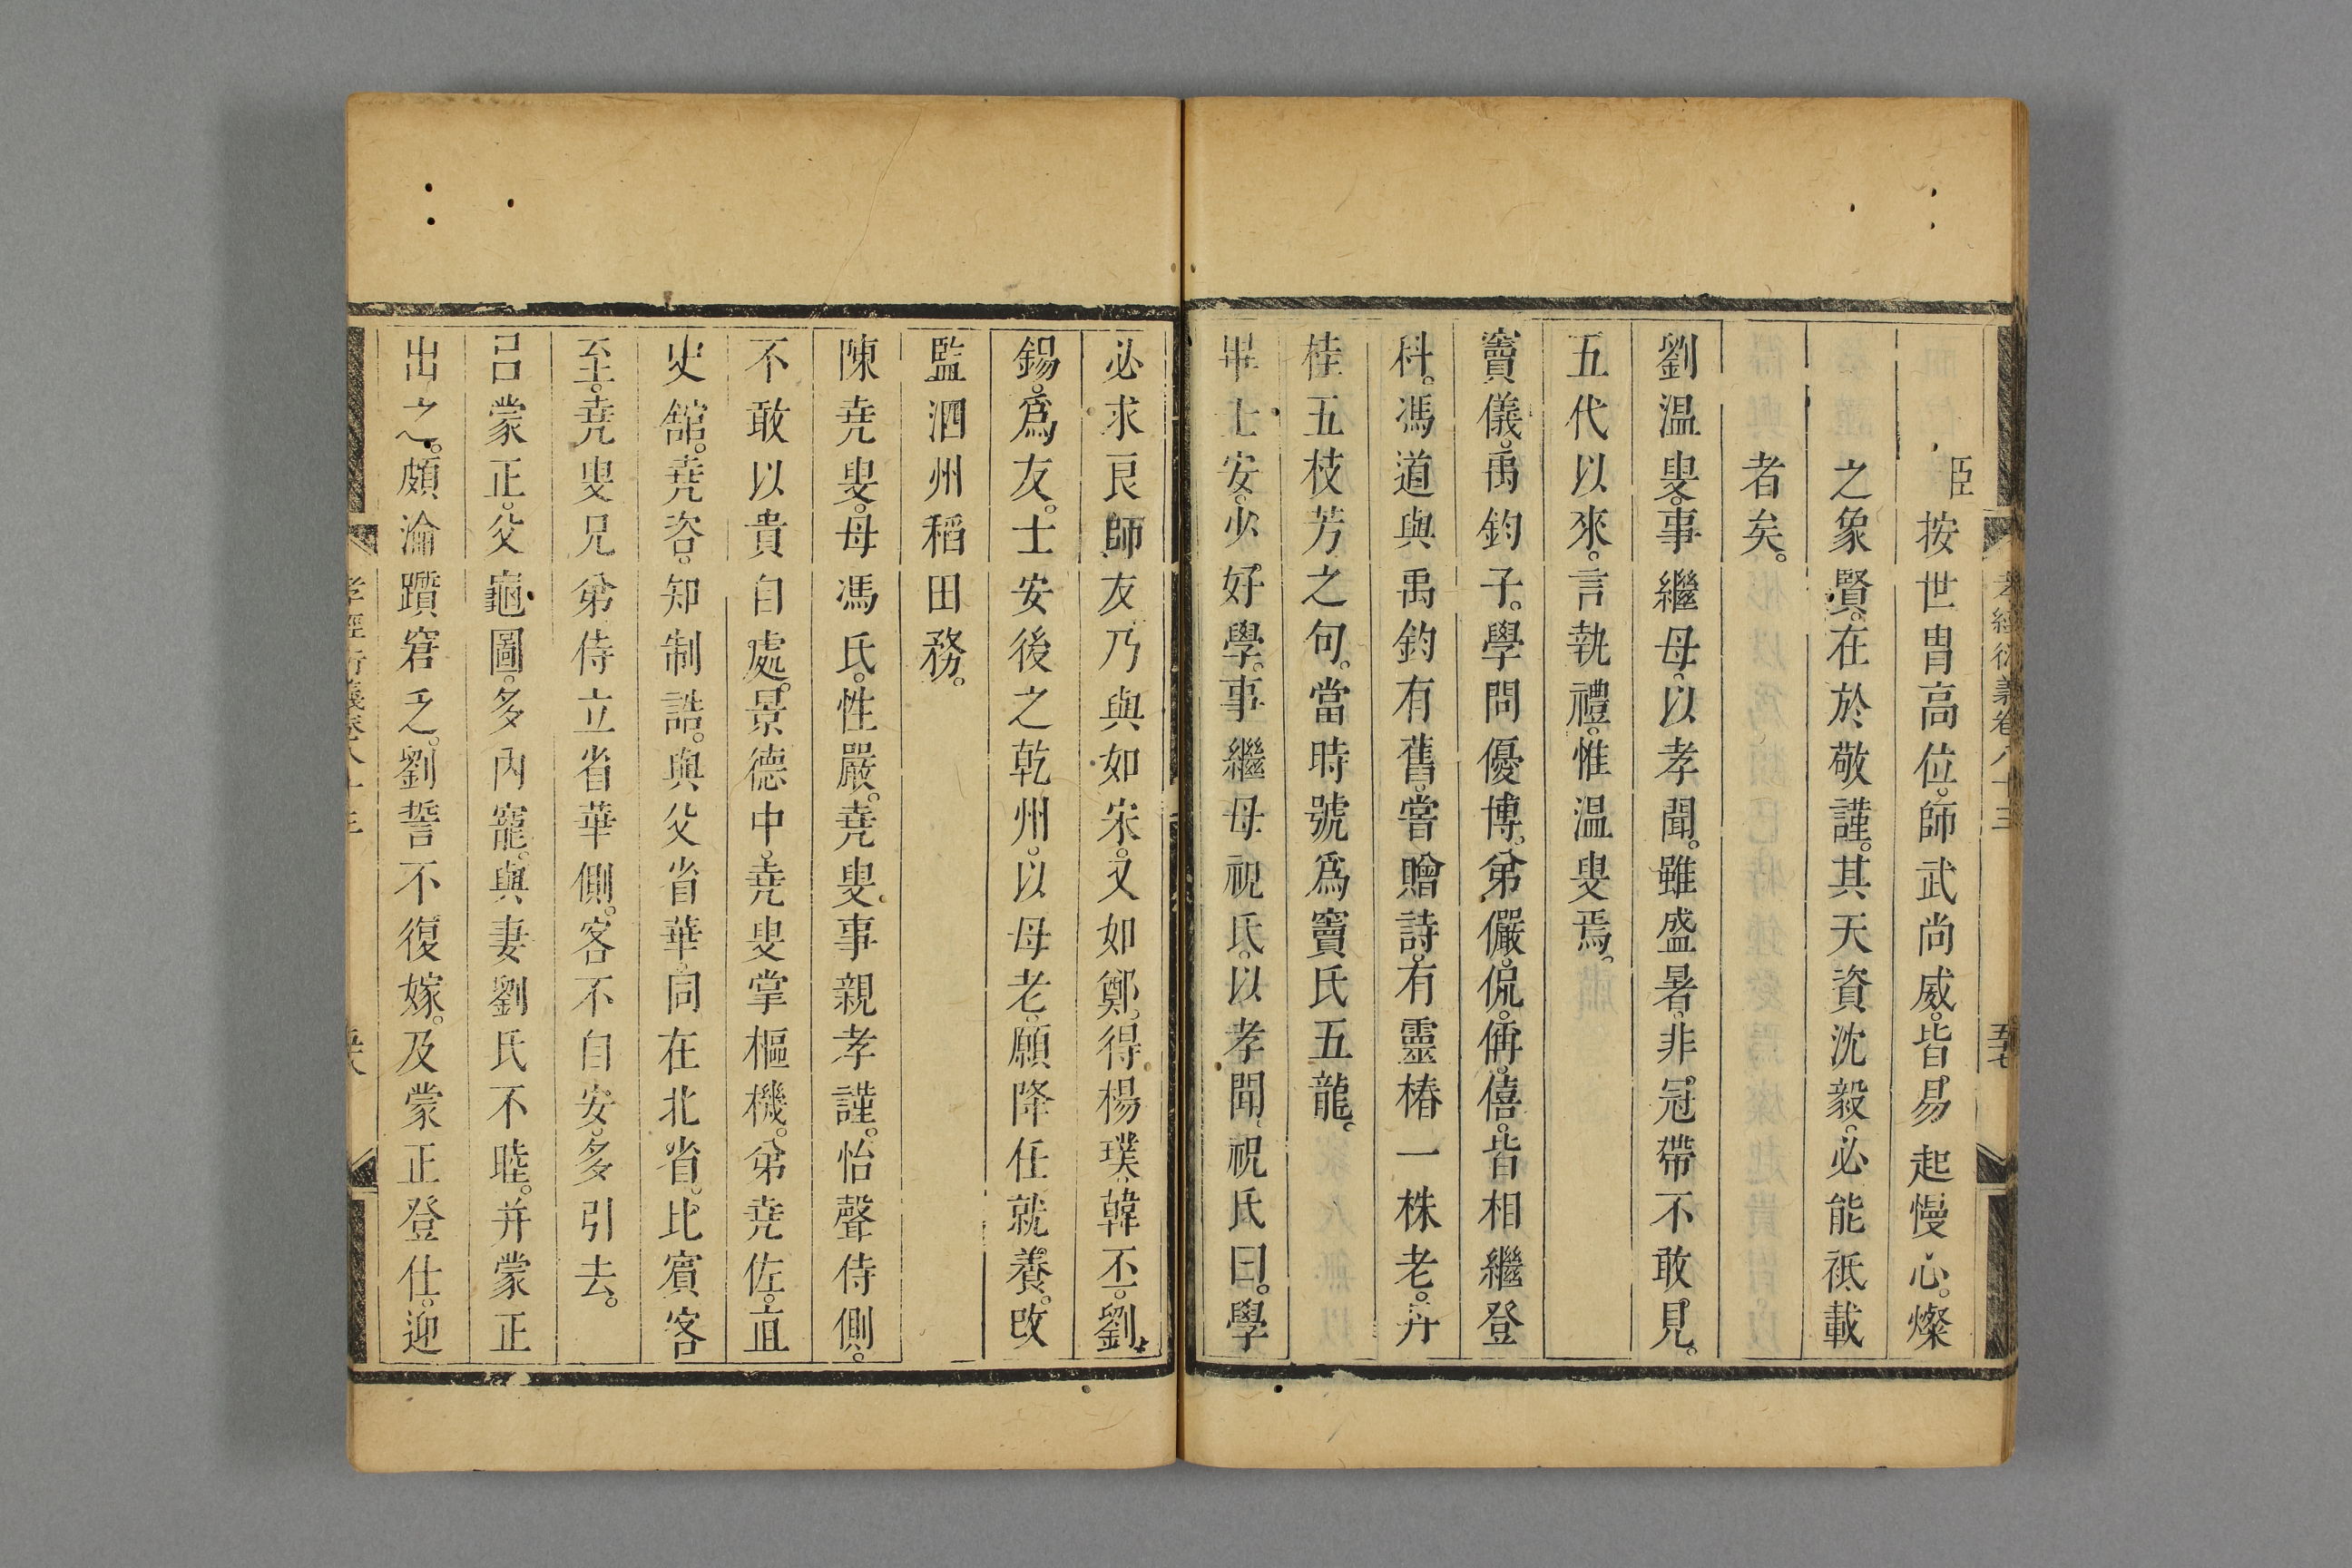 孝經衍義卷八十三
五十七
臣按世胄高位。師武尚威。皆易起慢心。燦
之象賢。在於敬謹。其天資沈毅。必能祗載
者矣。
劉温叟。事繼母。以孝聞。雖盛暑。非冠帶不敢見。
五代以來。言執禮。惟温叟焉。
竇儀。禹鈞子。學問優博。弟儼。侃。偁。僖。皆相繼登
科。馮道與禹鈞有舊。嘗贈詩。有靈椿一株老。丹
桂五枝芳之句。當時號爲竇氏五龍。
畢士安。少好學。事繼母祝氏。以孝聞。祝氏曰。學
必求良師友乃與如宋。又如鄭。得楊璞。韓丕。劉
錫。爲友。士安後之乾州。以母老。願降任就養。改
監泗州稻田務。
陳堯叟。母馮氏。性嚴。堯叟事親孝謹。怡聲侍側。
不敢以貴自處。景德中。堯叟掌樞機。弟堯佐。直
史舘。堯咨。知制誥。與父省華同在北省。比賓客
至。堯叟兄弟侍立省華側。客不自安。多引去。
吕蒙正。父龜圖。多內寵。與妻劉氏不睦。并蒙正
出之。頗淪躓窘乏。劉誓不復嫁。及蒙正登仕。迎
孝經衍義卷八十三
五十八